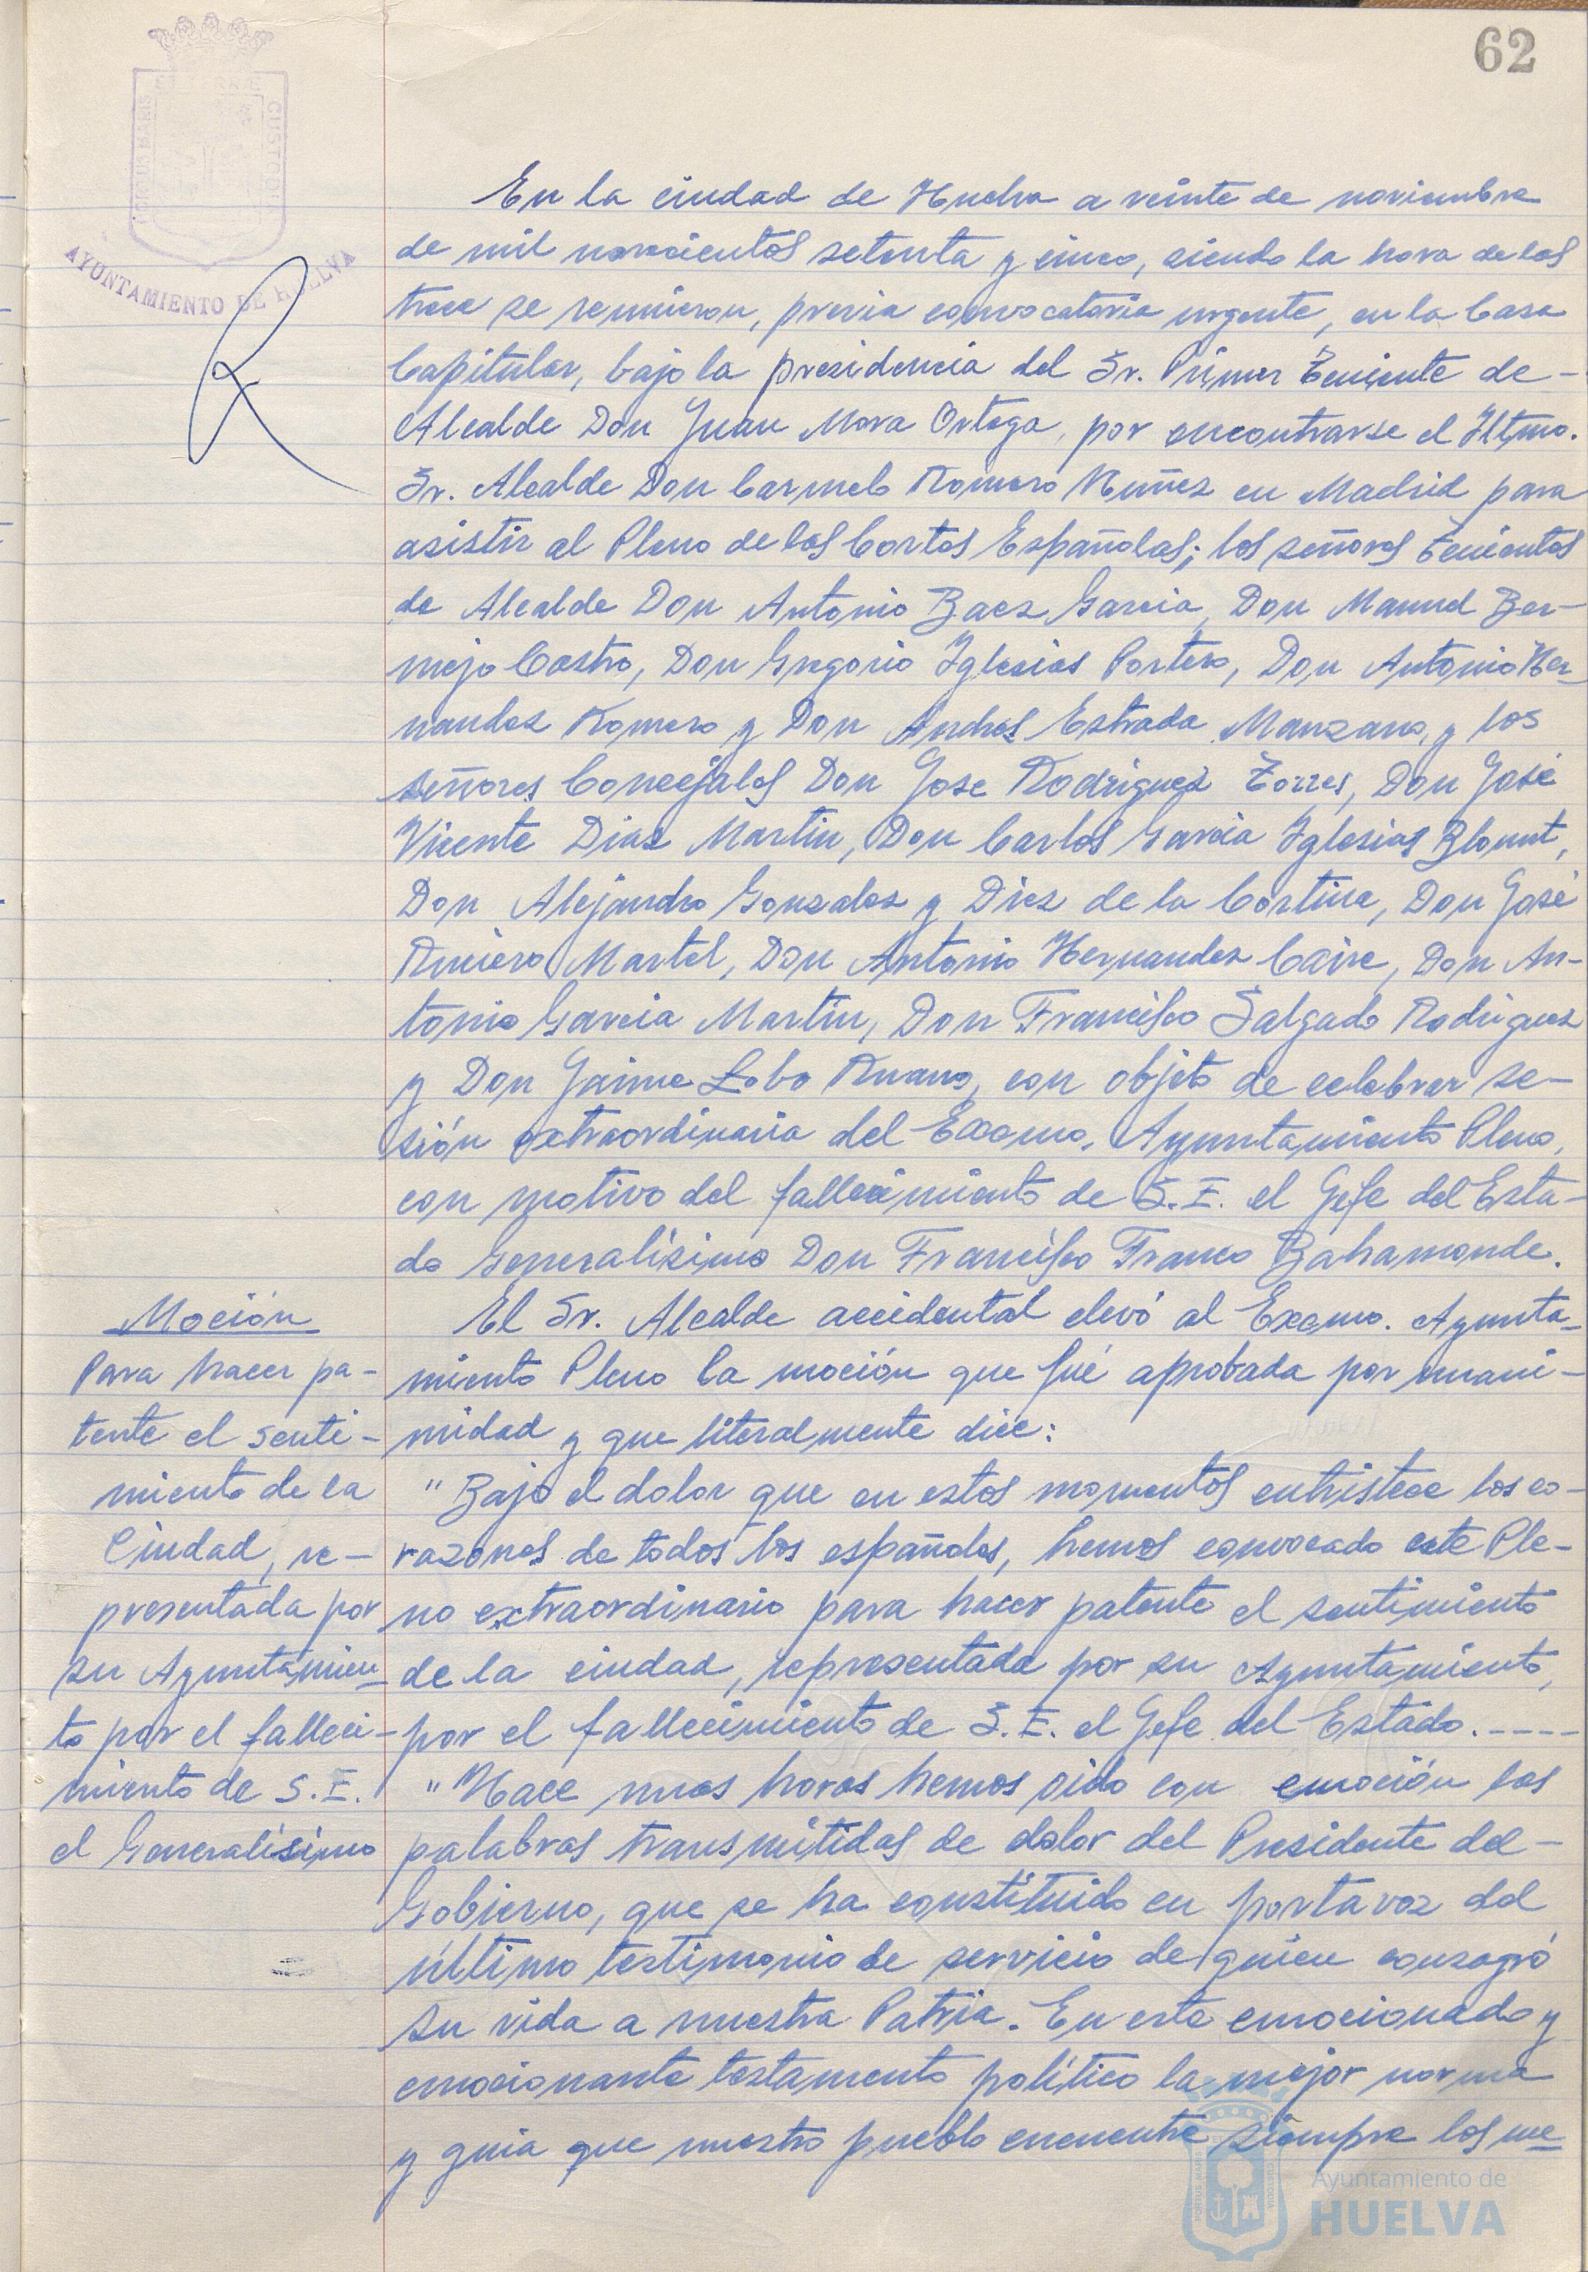 62
PORTUS MARIS
CUSTODIA
AYUNTAMIENTO DE HUELVA
En la ciudad de Huelva a veinte de noviembre
de mil novecientos setenta y cinco, siendo la hora de las
trece se reunieron, previa convocatoria urgente, en la Casa
Capitular, bajo la presidencia del Sr. Primer Teniente de-
Alcalde Don Juan Mora Ortega, por encontrarse el Iltmo.
Sr. Alcalde Don Carmelo Romero Nuñez en Madrid para
asistir al Pleno de las Cortes Españolas; los señores Tenientes
de Alcalde Don Antonio Baez Garcia, Don Manuel Ber-
mejo Castro, Don Gregorio Iglesias Portero, Don Antonio Her-
nandez Romero y Don Andres Estrada Manzano, y los
señores Concejales Don Jose Rodriguez Torres, Don José
Vicente Diaz Martin, Don Carlos Garcia Iglesias Blount,
Don Alejandro Gonzalez y Diez de la Cortina, Don José
Ruciero Martel, Don Antonio Hernandez Caire, Don An-
tonio Garcia Martin, Don Francisco Salgado Rodriguez
y Don Jaime Lobo Ruano, con objeto de celebrar se-
sión extraordinaria del Excmo. Ayuntamiento Pleno,
con motivo del fallecimiento de S.E. el Gefe del Esta-
do Generalisimo Don Francisco Franco Bahamonde.
Moción
Para hacer pa-
tente el senti-
miento de la
Ciudad, re-
presentada por
su Ayuntamien-
to por el falleci-
miento de S.E.
el Generalisimo
El Sr. Alcalde accidental elevó al Excmo. Ayunta-
miento Pleno la moción que fué aprobada por unani-
midad y que literalmente dice:
"Bajo el dolor que en estos momentos entristece los co-
razones de todos los españoles, hemos convocado este Ple-
no extraordinario para hacer patente el sentimiento
de la ciudad, representada por su Ayuntamiento,
por el fallecimiento de S.E. el Gefe del Estado.----
"Hace unas horas hemos oido con emoción las
palabras transmitidas de dolor del Presidente del-
Gobierno, que se ha constituido en portavoz del
último testimonio de servicio de quien consagró
su vida a nuestra Patria. En este emocionado y
emocionante testamento político la mejor norma
y guia que nuestro pueblo encuentre siempre los me-
Ayuntamiento de
HUELVA